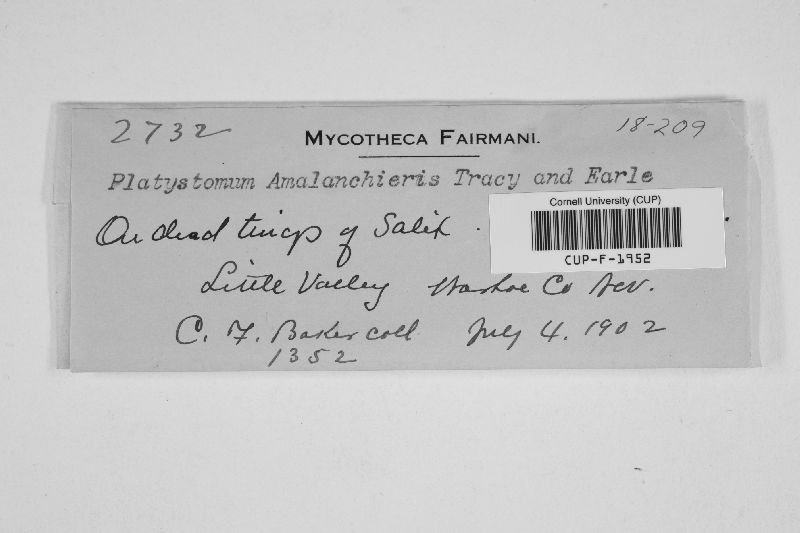 2732
18-209
MYCOTHECA FAIRMANI.
Platystomum Amalanchieris Tracy and Earle
Cornell University (CUP)
CUP-F-1952
On dead twigs of Salix.
Little Valley Washoe Co Nev.
C. F. Baker coll July 4. 1902
1352